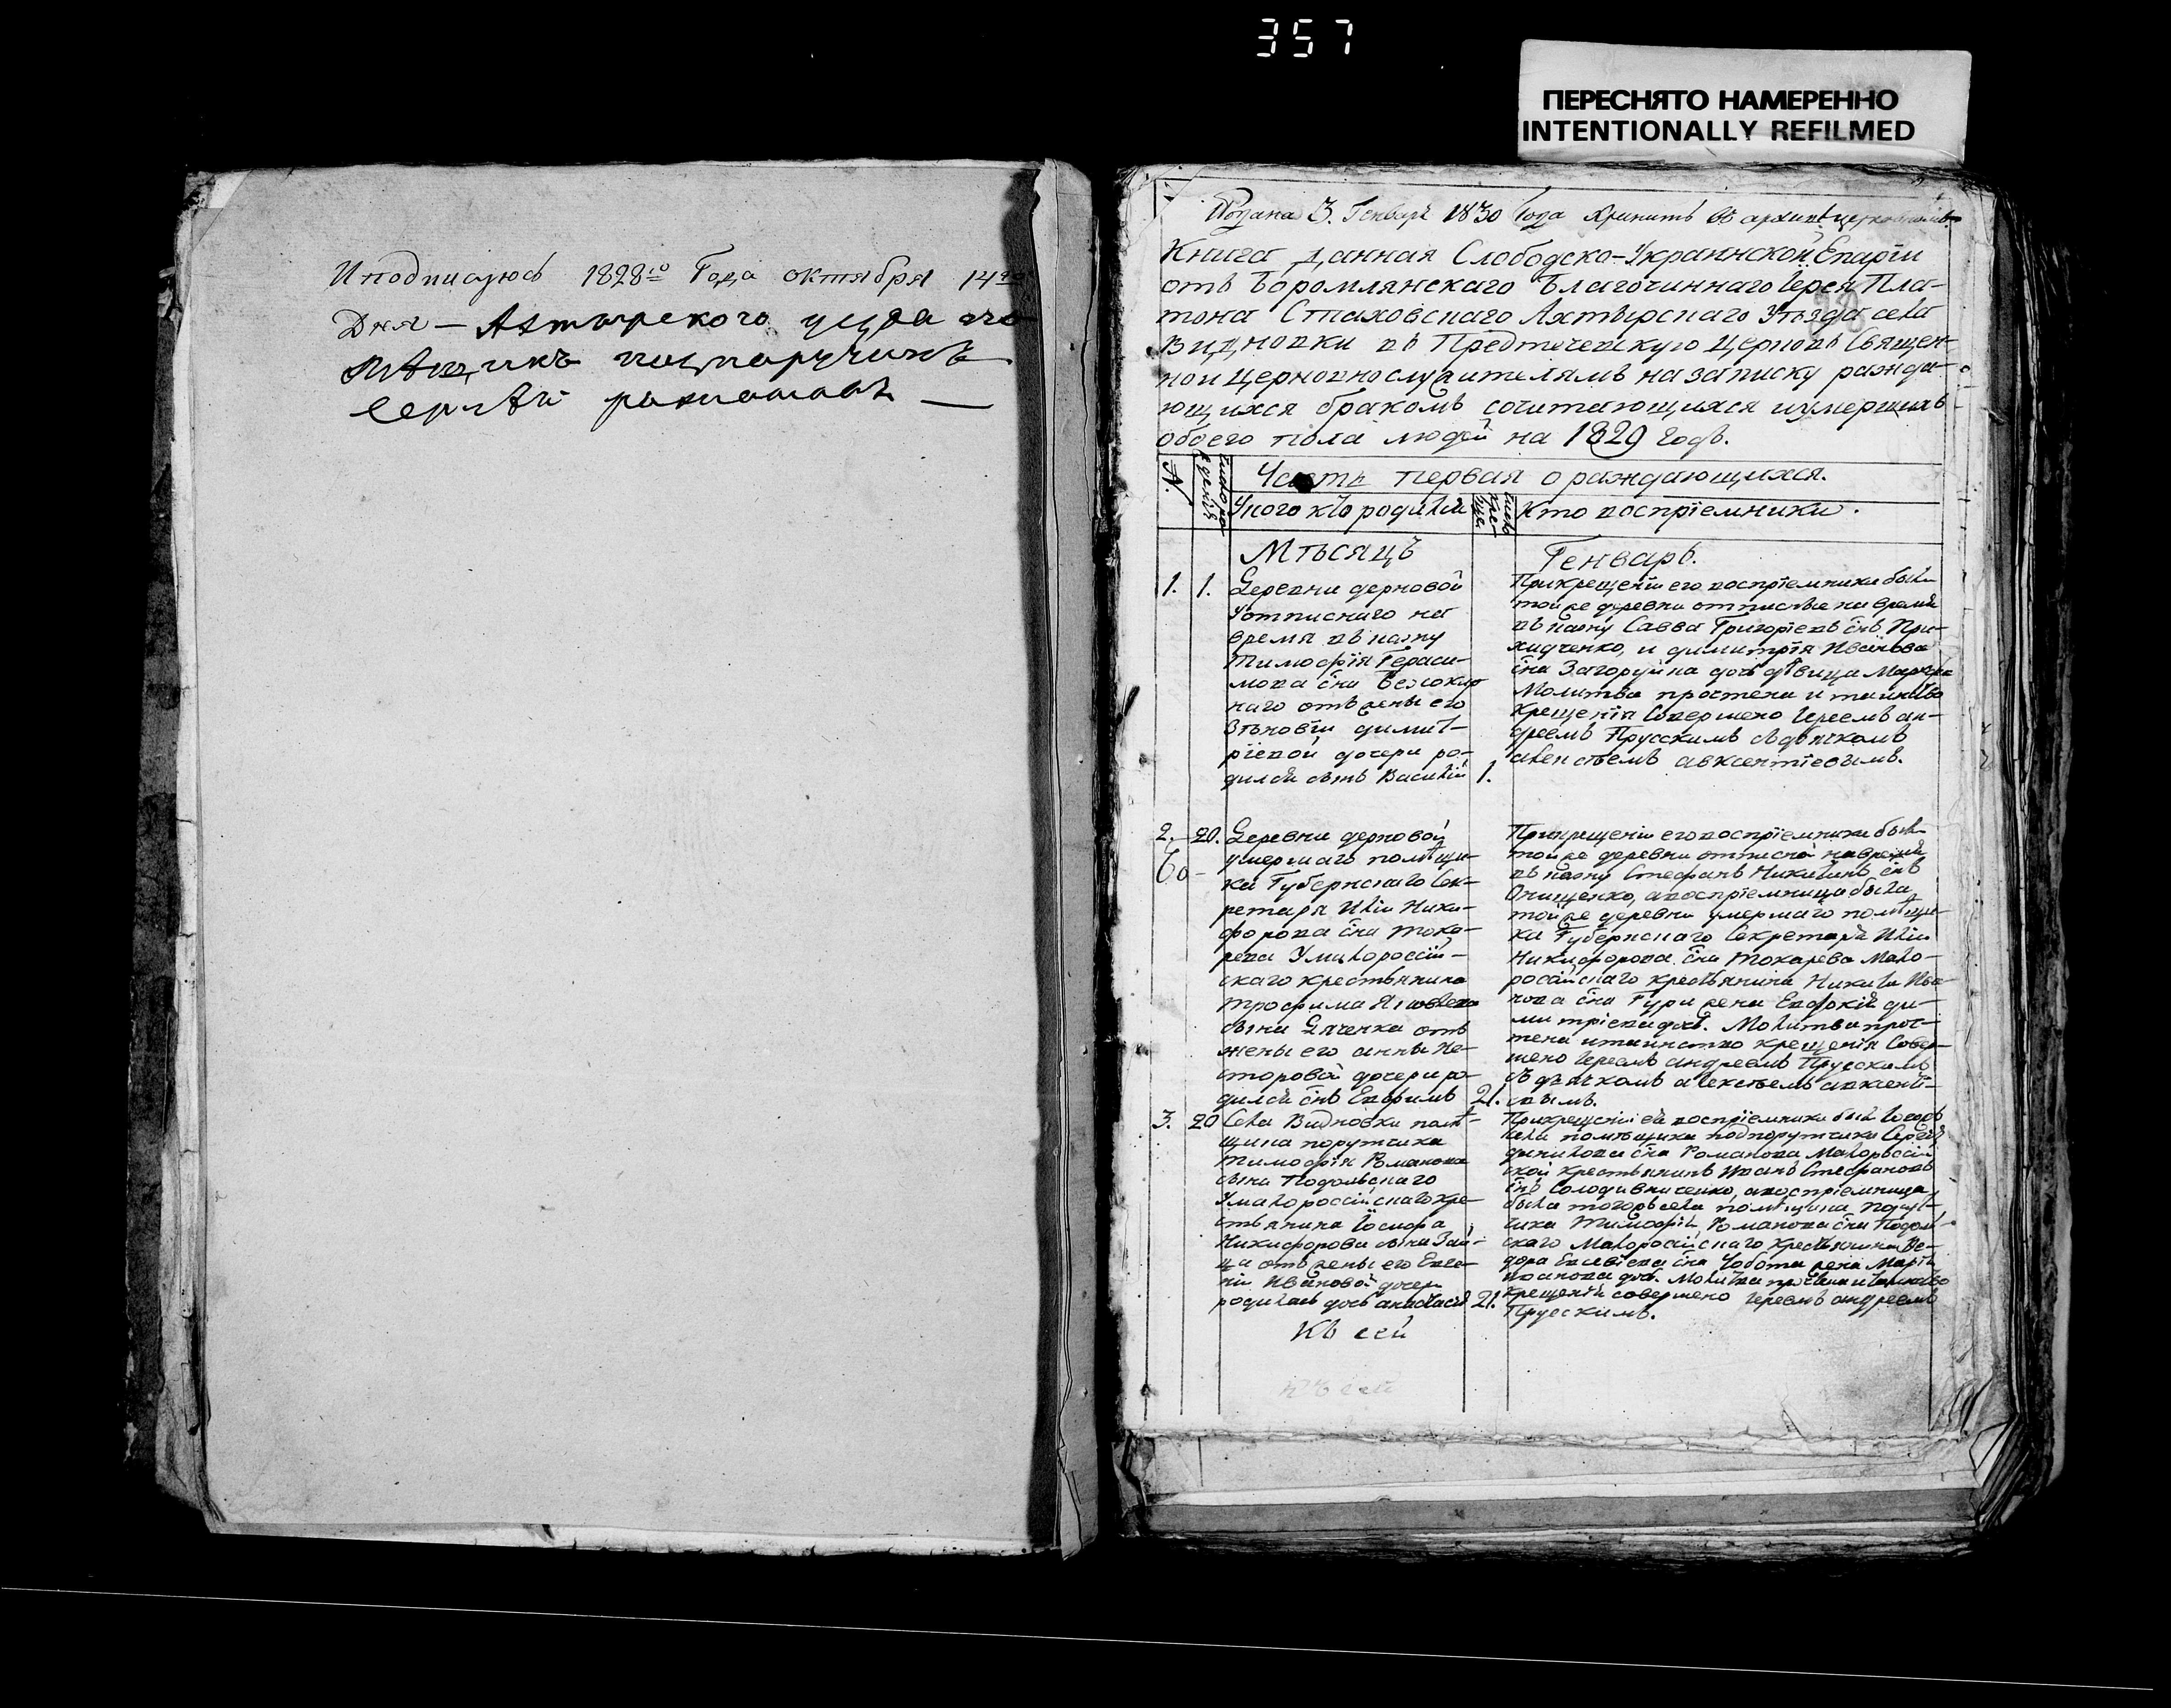 357
ПЕРЕСНЯТО НАМЕРЕННО
INTENTIONALLY REFILMED
И подписуюсь 1828го Года октября 14го
Дня — Ахтырского уезда по
мѣщикъ подпоручикъ
Сергѣй романовъ —
Подана 3. Генваря 1830 Года хранить въ архивѣ церковномъ
Книга данная Слободско-Украинской Епархіи
отъ Боромлянскаго Благочиннаго Іерея Пла-
тона Стаховскаго Ахтырскаго Уѣзда села
Видновки въ Предтечевскую Церковь Священ-
ноцерковнослужителямъ на записку ражда-
ющихся бракомъ сочитающихся иумершихъ
обоего пола людей на 1829 Годъ.
N.
Часть первая о раждающихся.
Укого кто родился
Кто воспріемники.
Мѣсяцъ
Генварь.
1. 1. Деревни дерновой
Уотписнаго на
время въ казну
Тимофія Гераси-
мова сна Безокир
наго отъ жены его
Зѣновіи димит-
ріевой дочери ро-
дился сынъ Василій 1.
Прикрещеніи его воспріемники были
тойже деревни отписные на время
въ казну Савва Григоріевъ снъ При-
хидченко, и димитрія Иванова
сна Загоруйка дочь дѣвица Марѳа
Молитва простена и таинство
Крещенія Совершено Іереемъ ан-
дреемъ Прусскимъ съдьячкомъ
алексѣемъ авксентіевимъ.
2. 20. Деревни дерновой
умершаго помѣщи-
ка Губернскаго Сек-
ретаря Иліи Ники-
форова сна Тока-
рева Умалороссій-
скаго крестьянина
Трофима Яковлева
сына Дяченка отъ
жены его анны Не-
сторовой дочери ро-
дился снъ Евфимъ 21.
Прикрещеніи еговоспріемники были
тойже деревни отписной навремя
въ казну Стефанъ Никитинъ снъ
Онищенко, авоспріемница была
тойже деревни умершаго помѣщи-
ка Губернскаго Секретаря Иліи
Никифорова сна Токарева Мало-
россійскаго крестьянина Никиты Ива
нова сна Гури жена Евдокія ди-
митріева дочь. Молитва прос-
тена итаинство крещенія Совер-
шено Іереемъ андреемъ Прусскимъ
съ дьячкомъ алексѣемъ авксенті-
евымъ.
3. 20 Села Видновки помѣ-
щика поручика
Тимофія Романова
сына Подольскаго
Умалороссійскаго кре-
стьянина Іосифа
Никифорова сына Зай-
ца отъ жены его Евге-
ніи Ивановой дочери
родилась дочь анастасія 21.
Прикрещеніи ей воспріемники были тогожъ
села помѣщика подпоручика Сергѣя
данилова сна Романова Малороссій
ской крестьянинъ Иванъ Стефановъ
снъ Солодивниченко, авоспріемница
была тогожъ села помѣщика поруч-
чика Тимофія Романова сна Подоль-
скаго Малороссійскаго крестьянина Ѳе-
дора Евсевіева сна Чобота жена Марія
иванова дочь. Молитва простена и таинство
Крещенія совершено Іереемъ андреемъ
Прусскимъ.
Къ сей